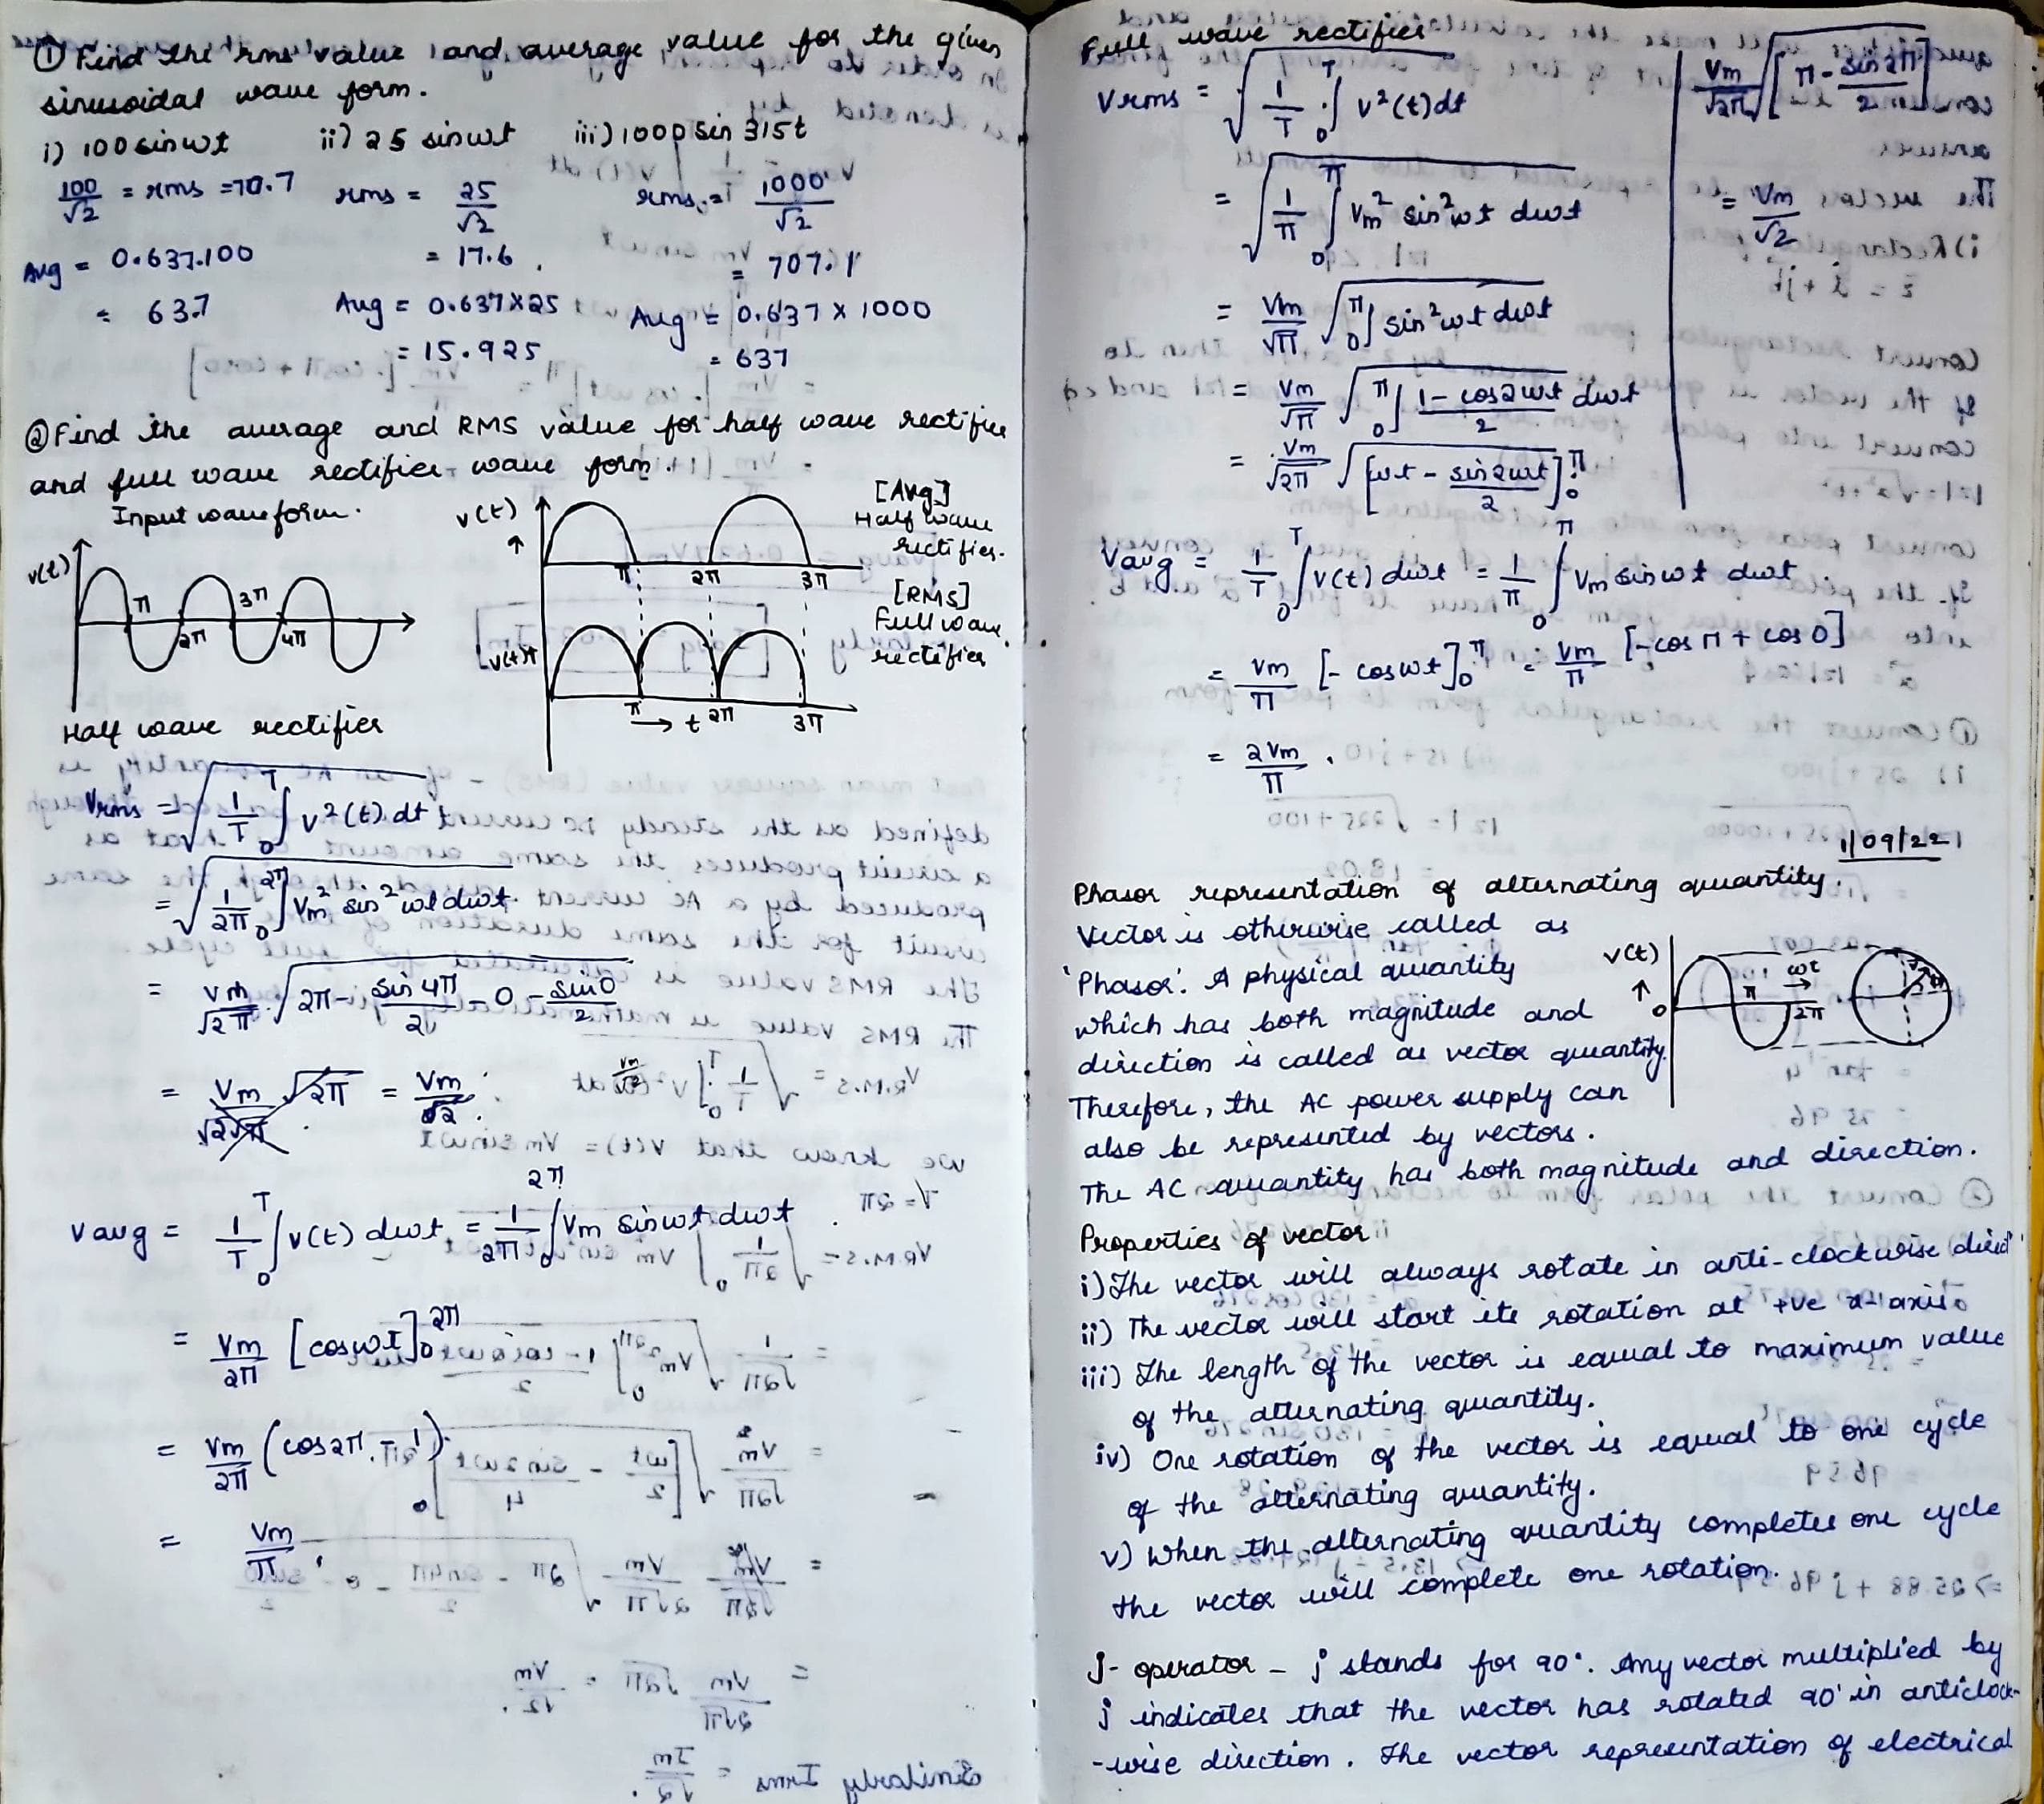 ① Find the rms value and average value for the given
sinusoidal wave form.
i) 100 sin ωt ii) 25 sin ωt iii) 1000 sin 315t
100/√2 = rms = 70.7 rms = 25/√2 rms = 1000/√2
Avg = 0.637.100 = 17.6 = 707.1
= 63.7 Avg = 0.637 x 25 Avg = 0.637 x 1000
= 15.925 = 637
② Find the average and RMS value for half wave rectifier
and full wave rectifier wave form.
Input waveform.
v(t) π 2π 3π 4π
v(t) ↑ π 2π 3π
[Avg]
Half wave
rectifier.
[RMS]
Full wave
rectifier
v(t)↑ π → t 2π 3π
Half wave rectifier
Vrms = √(1/T ∫₀ᵀ v²(t) dt)
= √(1/2π ∫₀^2π Vm² sin² ωt dωt)
= Vm/√2π √(2π - sin 4π/2 - 0 - sin 0/2)
= Vm/√2√π √2π = Vm/√2
Vavg = 1/T ∫₀ᵀ v(t) dωt = 1/2π ∫₀^2π Vm sin ωt dωt
= Vm/2π [cos ωt]₀^2π
= Vm/2π (cos 2π - 1)
= Vm/π
Full wave rectifier
Vrms = √(1/T ∫₀ᵀ v²(t) dt)
= √(1/π ∫₀^π Vm² sin² ωt dωt)
= Vm/√π √(₀^π∫ sin² ωt dωt)
= Vm/√π √(₀^π∫ 1 - cos 2ωt/2 dωt)
= Vm/√2π √[ωt - sin 2ωt/2]₀^π
Vm/√2π √[π - sin 2π/2]
= Vm/√2
Vavg = 1/T ∫₀ᵀ v(t) dωt = 1/π ∫₀^π Vm sin ωt dωt
= Vm/π [- cos ωt]₀^π = Vm/π [-cos π + cos 0]
= 2Vm/π.
1/09/22
Phasor representation of alternating quantity.
Vector is otherwise called as
'Phasor'. A physical quantity
which has both magnitude and
direction is called as vector quantity.
Therefore, the AC power supply can
also be represented by vectors.
v(t) ↑ 0 π ωt → 2π
The AC quantity has both magnitude and direction.
Properties of vector
i) The vector will always rotate in anti-clockwise direct
ii) The vector will start its rotation at +ve x-axis.
iii) The length of the vector is equal to maximum value
of the alternating quantity.
iv) One rotation of the vector is equal to one cycle
of the alternating quantity.
v) When the alternating quantity completes one cycle
the vector will complete one rotation.
J- operator - j stands for 90°. Any vector multiplied by
j indicates that the vector has rotated 90° in anticlock-
-wise direction. The vector representation of electrical